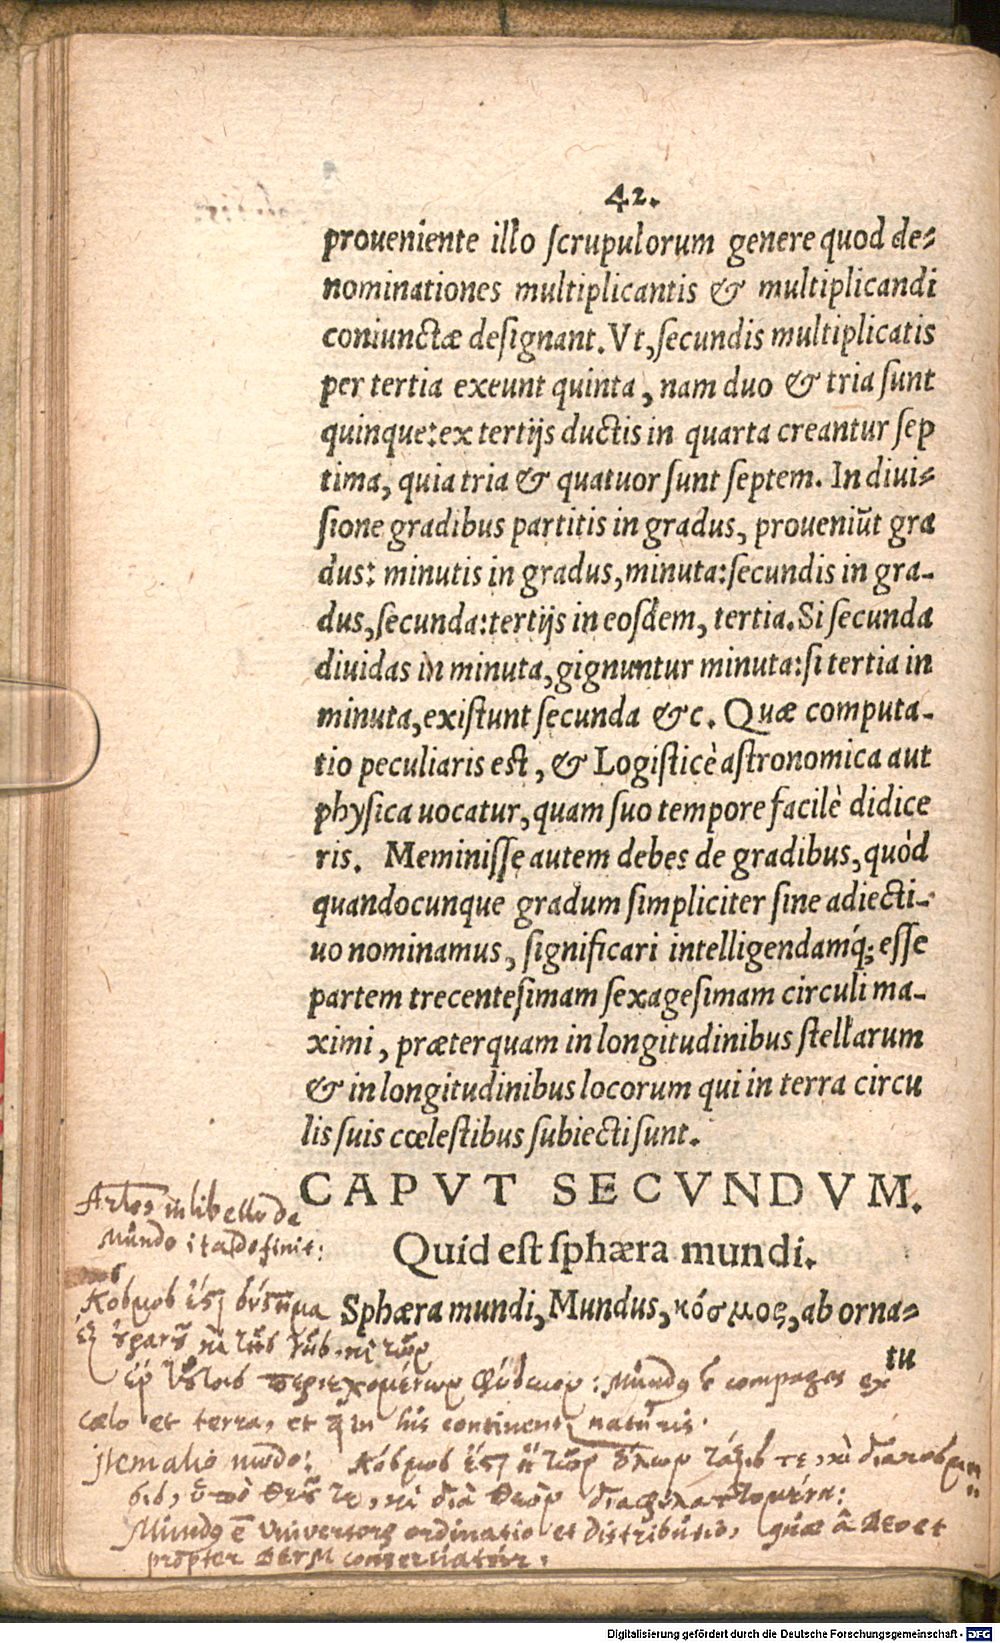 42.
proueniente illo ſcrupulorum genere quod de-
nominationes multiplicantis & multiplicandi
coniunctæ deſignant. Vt, ſecundis multiplicatis
per tertia exeunt quinta, nam duo & tria ſunt
quinque: ex tertijs ductis in quarta creantur ſep
tima, quia tria & quatuor ſunt ſeptem. In diui-
ſione gradibus partitis in gradus, proueniūt gra
dus: minutis in gradus, minuta: ſecundis in gra-
dus, ſecunda: tertijs in eoſdem, tertia. Si ſecunda
diuidas in minuta, gignuntur minuta: ſi tertia in
minuta, exiſtunt ſecunda &c. Quæ computa-
tio peculiaris eſt, & Logiſticè aſtronomica aut
phyſica uocatur, quam ſuo tempore facilè didice
ris. Meminiſſe autem debes de gradibus, quòd
quandocunque gradum ſimpliciter ſine adiecti-
uo nominamus, ſignificari intelligendamq́; eſſe
partem trecenteſimam ſexageſimam circuli ma-
ximi, præterquam in longitudinibus ſtellarum
& in longitudinibus locorum qui in terra circu
lis ſuis cœleſtibus ſubiecti ſunt.
CAPVT SECVNDVM.
Quid eſt ſphæra mundi.
Sphæra mundi, Mundus, κόσμος, ab orna-
tu
in libello de
Mūndo ita definit:
Κόσμος ἐστι σύστημα
ἐξ
ἐν τούτοις περιεχομένων φύσεων: Mūndus ē compages ex
cœlo et terra, et in his continent naturis.
Item alio modo: Κόσμος ἐστι ἡ τῶν ὅλων τάξις τε, καὶ διακόσμη-
σις, ὑπὸ θεοῦ τε, καὶ διὰ θεὸν διαφυλαττομένη:
Mūndus ē Vniversorum ordinatio et distributio, quæ â Deo et
propter Deum conservatur.
Digitalisierung gefördert durch die Deutsche Forschungsgemeinschaft - DFG